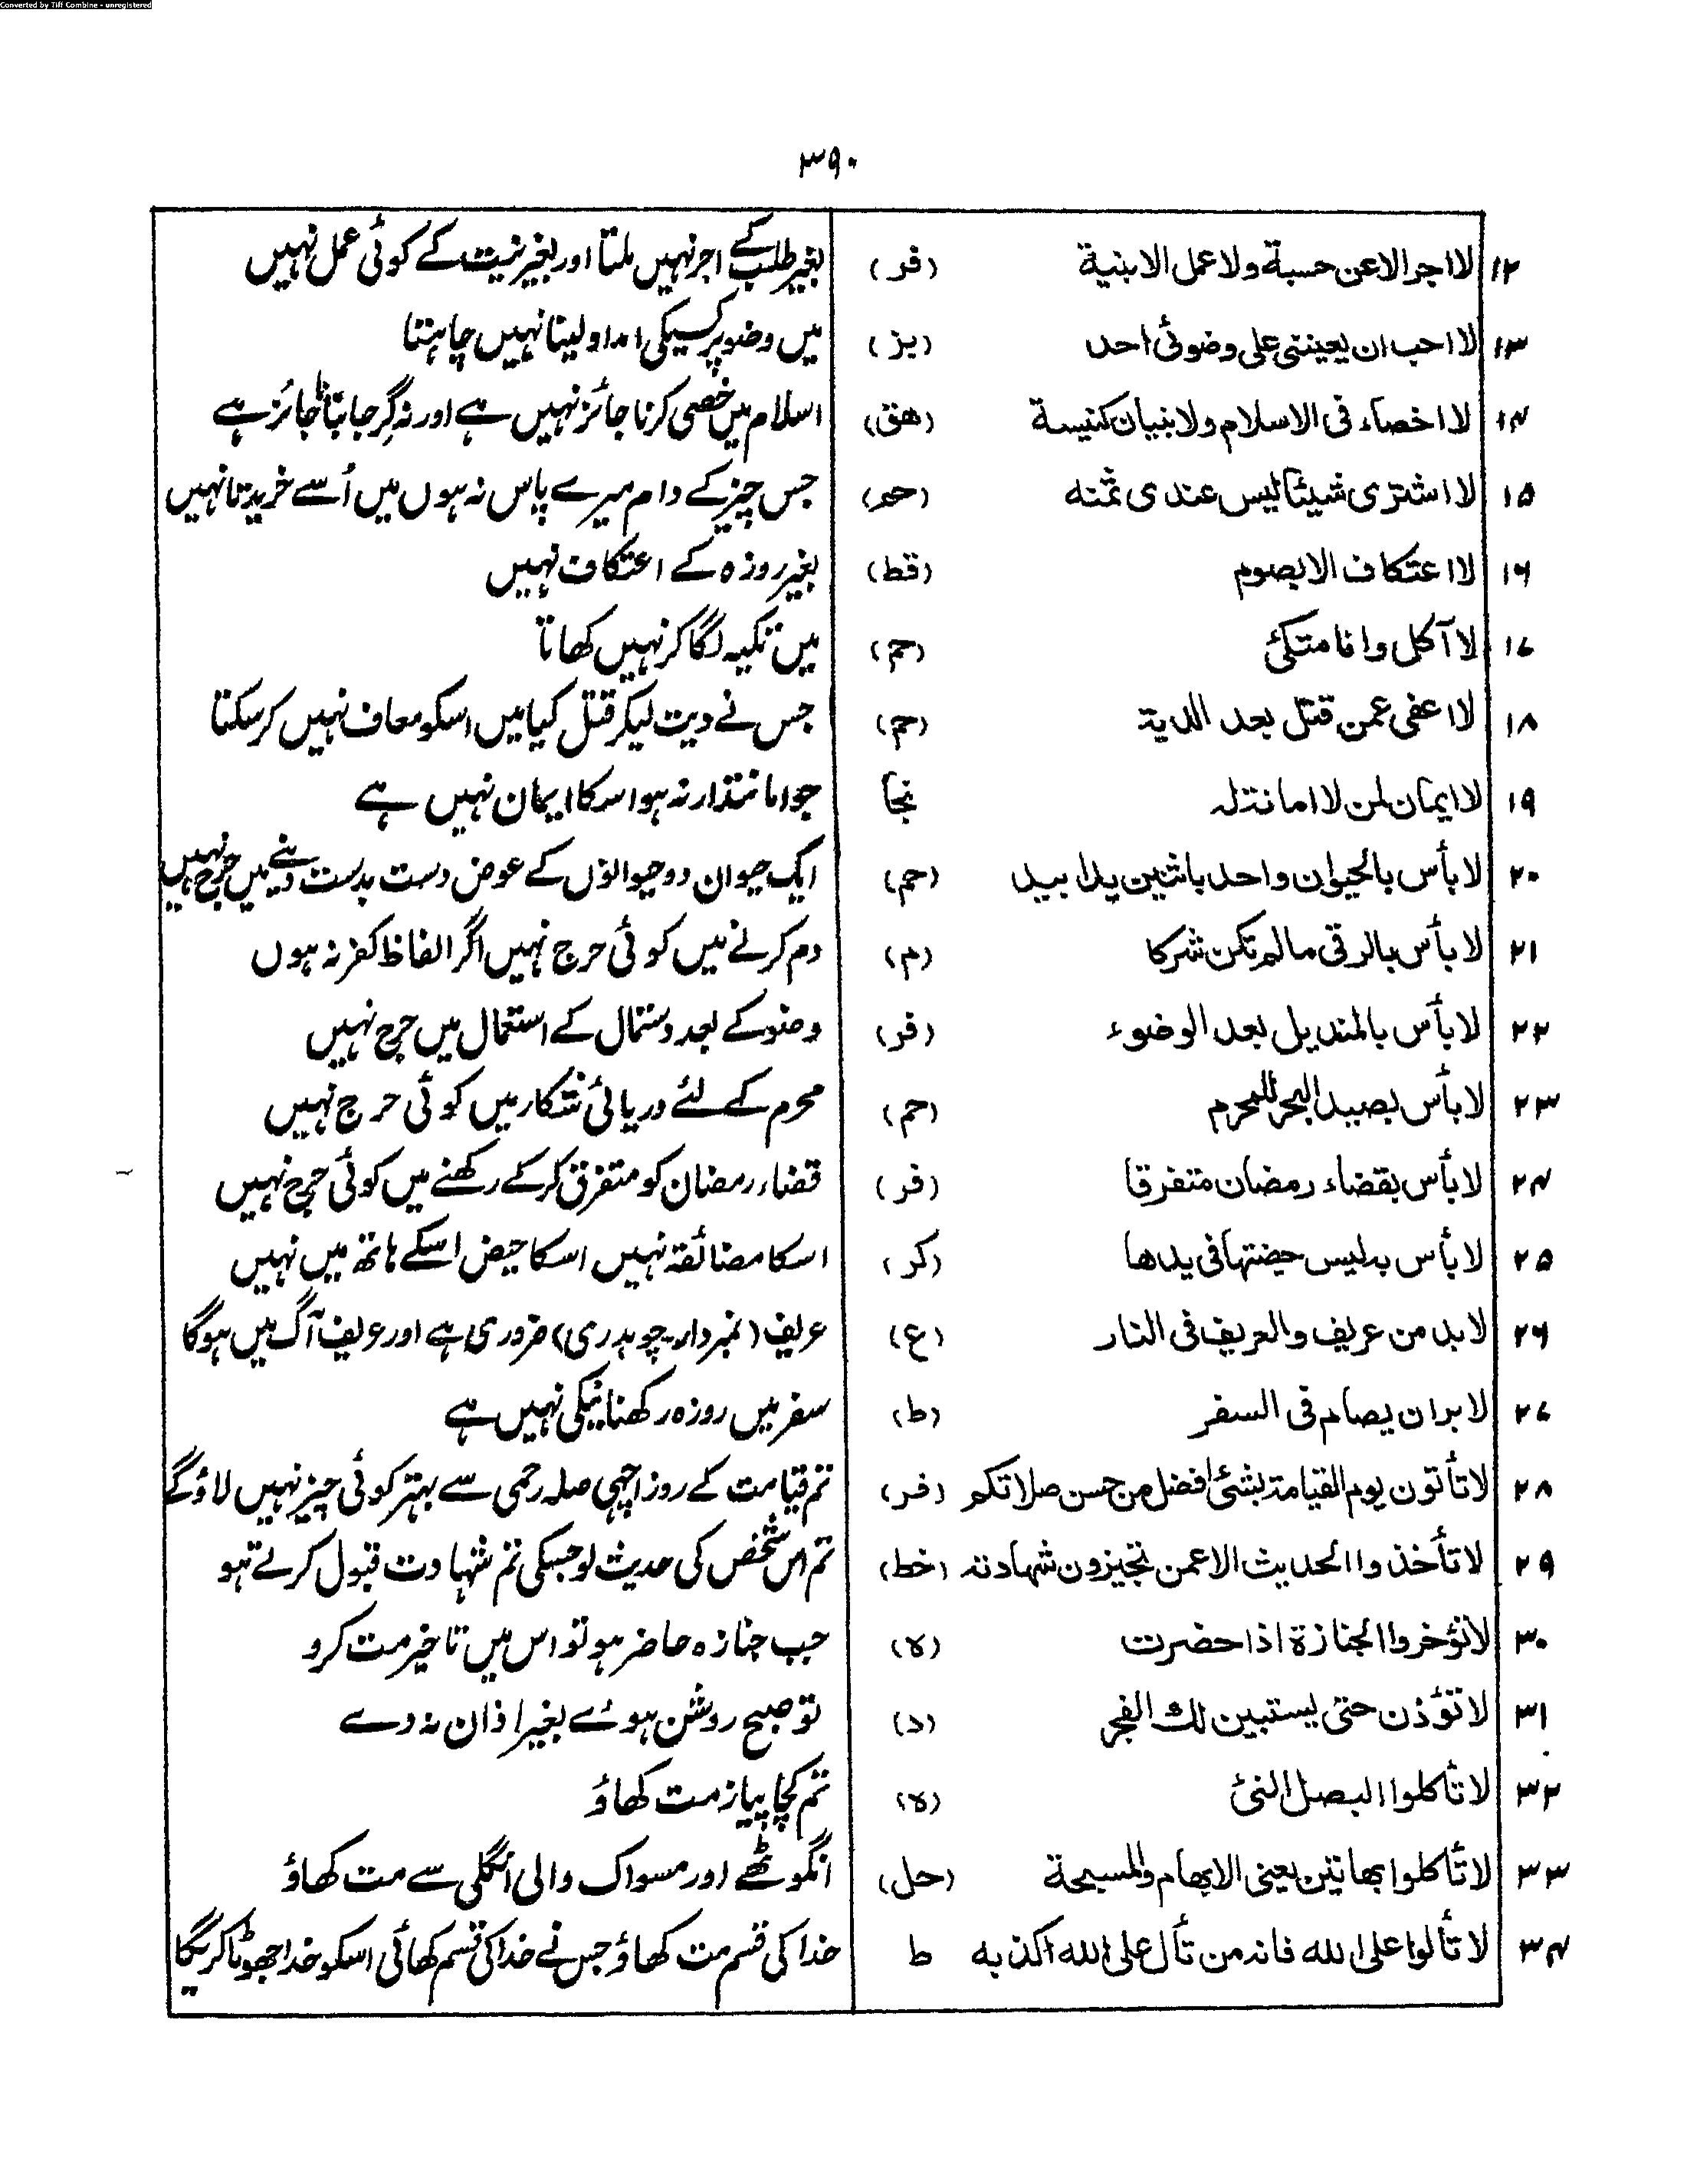 Converted by Tiff Combine - unregistered
۳۹۰
۱۲ لا اجر الا عن حسبة ولا عمل الا بنية (فر) بغیر طلب کے اجر نہیں ملتا اور بغیر نیت کے کوئی عمل نہیں
۱۳ لا احب ان یعیننی علی وضوئی احد (یز) میں وضو پر کسیکی امداد لینا نہیں چاہتا
۱۴ لا اخصاء فی الاسلام ولا بنیان کنیسة (هق) اسلام میں خصی کرنا جائز نہیں ہے اور نہ گرجا بنانا جائز ہے
۱۵ لا اشتری شیئا لیس عندی ثمنه (حم) جس چیز کے دام میرے پاس نہ ہوں میں اُسے خریدتا نہیں
۱۶ لا اعتکاف الا بصوم (قط) بغیر روزہ کے اعتکاف نہیں
۱۷ لا آکل وانا متکئ (حم) میں تکیہ لگا کر نہیں کھاتا
۱۸ لا اعفی عمن قتل بعد الدیة (حم) جس نے دیت لیکر قتل کیا میں اسکو معاف نہیں کر سکتا
۱۹ لا ایمان لمن لا امانة له نجا جو امانتدار نہ ہو اسکا ایمان نہیں ہے
۲۰ لا بأس بالحیوان واحد باثنین یدا بید (حم) ایک حیوان دو حیوانوں کے عوض دست بدست دینے میں حرج نہیں
۲۱ لا بأس بالرقی مالم تکن شرکا (م) دم کرنے میں کوئی حرج نہیں اگر الفاظ کفر نہ ہوں
۲۲ لا بأس بالمندیل بعد الوضوء (فر) وضو کے بعد دستمال کے استعمال میں حرج نہیں
۲۳ لا بأس بصید البحر للمحرم (حم) محرم کے لئے دریائی شکار میں کوئی حرج نہیں
۲۴ لا بأس بقضاء رمضان متفرقا (فر) قضاء رمضان کو متفرق کرکے رکھنے میں کوئی حرج نہیں
۲۵ لا بأس بہ لیس حیضتها فی یدها (کر) اسکا مضائقہ نہیں اسکا حیض اسکے ہاتھ میں نہیں
۲۶ لا بد من عریف والعریف فی النار (ع) عریف (نمبردار۔چوہدری) ضروری ہے اور عریف آگ میں ہوگا
۲۷ لا بر ان یصام فی السفر (ط) سفر میں روزہ رکھنا نیکی نہیں ہے
۲۸ لا تأتون یوم القیامة بشئ افضل من حسن صلاتکم (فر) تم قیامت کے روز اچھی صلہ رحمی سے بہتر کوئی چیز نہیں لاؤ گے
۲۹ لا تأخذوا الحدیث الا عمن تجیزون شهادته (خط) تم اس شخص کی حدیث لو جسکی تم شہادت قبول کرتے ہو
۳۰ لا تؤخروا الجنازة اذا حضرت (ه) جب جنازہ حاضر ہو تو اس میں تاخیر مت کرو
۳۱ لا تؤذن حتی یستبین لك الفجر (د) تو صبح روشن ہوۓ بغیر اذان نہ دے
۳۲ لا تأکلوا البصل النئ (ه) تم کچا پیاز مت کھاؤ
۳۳ لا تأکلوا بهاتین یعنی الابهام والمسبحة (حل) انگوٹھے اور مسواک والی انگلی سے مت کھاؤ
۳۴ لا تألوا علی الله فانه من تأل علی الله اکذبه ط خدا کی قسم مت کھاؤ جس نے خدا کی قسم کھائی اسکو خدا جھوٹا کریگا